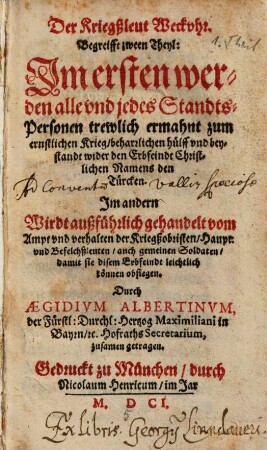 Der Kriegßleut Weckvhr.
1. Theil
Begreifft zween Theyl:
Im ersten wer-
den alle vnd jedes Standts-
Personen trewlich ermahnt zum
ernstlichen Krieg/ beharzlichen hülff vnd bey-
standt wider den Erbfeinde Christ-
lichen Namens den
Türcken.
Ad Conventũ vallis speciosæ
Im andern
Wirdt außführlich gehandelt vom
Ampt vnd verhalten der Kriegßobristen/ Haupt-
vnd Befelchßleuten/ auch gemeinen Soldaten/
damit sie disem Erbfeindt leichtlich
können obsiegen.
Durch
ÆGIDIVM ALBERTINVM,
der Fürstl: Durchl: Hertzog Maximiliani in
Bayrn/ ꝛc. Hofraths Secretarium,
zusamen getragen.
Gedruckt zu München/ durch
Nicolaum Henricum/ im Jar
M. DCI.
Ex libris Georgij